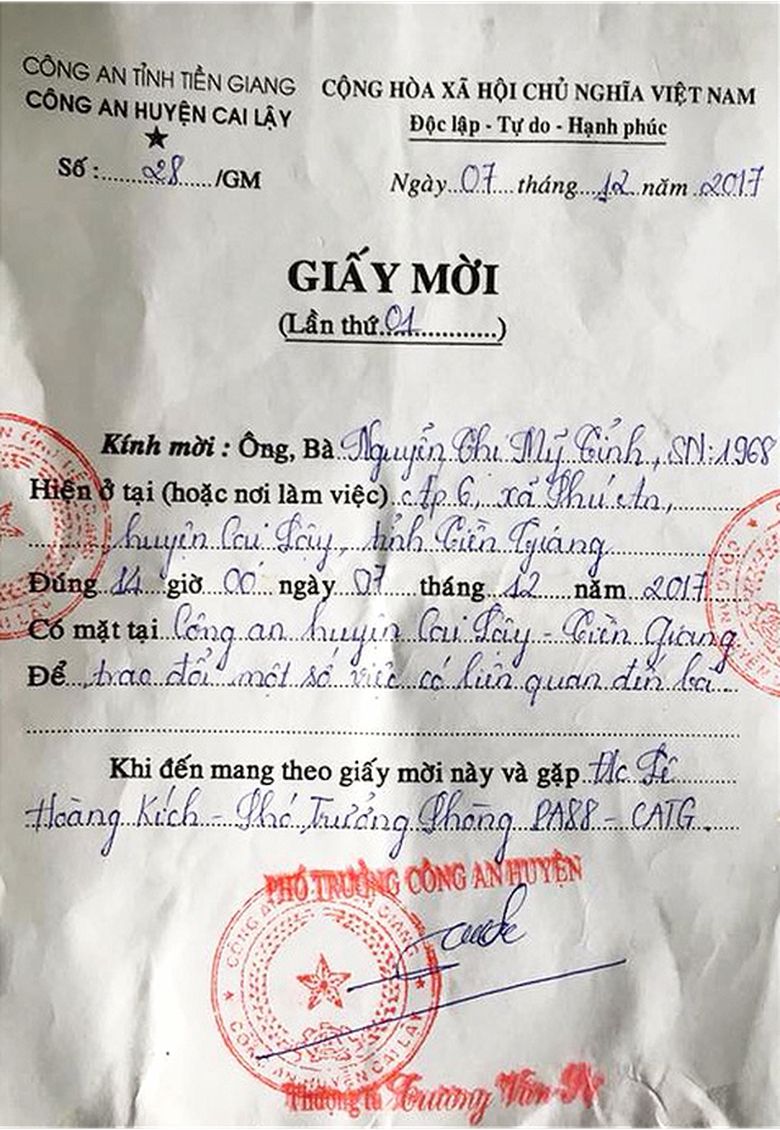 CÔNG AN TỈNH TIỀN GIANG
CÔNG AN HUYỆN CAI LẬY
Số :.......28....../GM
CỘNG HÒA XÃ HỘI CHỦ NGHĨA VIỆT NAM
Độc lập - Tự do - Hạnh phúc
Ngày..07...tháng...12..năm ..2017
GIẤY MỜI
(Lần thứ..01............)
Kính mời : Ông, Bà Nguyễn Thị Mỹ Tỉnh, SN: 1968
Hiện ở tại (hoặc nơi làm việc) ấp 6, xã Phú An,
huyện Cai Lậy, tỉnh Tiền Giang
Đúng 14 giờ 00 ngày 07 tháng 12 năm 2017
Có mặt tại Công an huyện Cai Lậy - Tiền Giang
Để trao đổi một số việc có liên quan đến bà
Khi đến mang theo giấy mời này và gặp Đ/c Lê
Hoàng Kích - Phó Trưởng Phòng PA88 - CATG.
PHÓ TRƯỞNG CÔNG AN HUYỆN
CÔNG AN HUYỆN CAI LẬY
Thượng tá Trương Văn